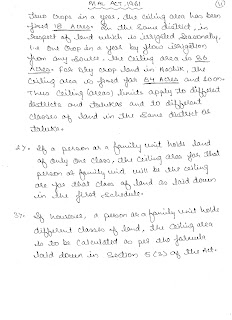 M.A.L. ACT, 1961
11
four crops in a year, the ceiling area has been
fixed 18 Acres. In the same district, in
respect of land which is irrigated seasonally,
i.e. one crop in a year by flow irrigation
from any source. The ceiling area is 36
Acres. For dry crop land in Nashik, the
ceiling area is fixed for 54 Acres and soon.
Thus ceiling areas limits apply to different
districts and talukas and to different
classes of land in the same district or
taluka.
2) If a person or a family unit holds land
of only one class, the ceiling area for that
person or family unit will be the ceiling
area for that class of land as laid down
in the first Schedule.
3) If however, a person or a family unit holds
different classes of land, the ceiling area
is to be calculated as per the formula
laid down in Section 5(3) of the Act.